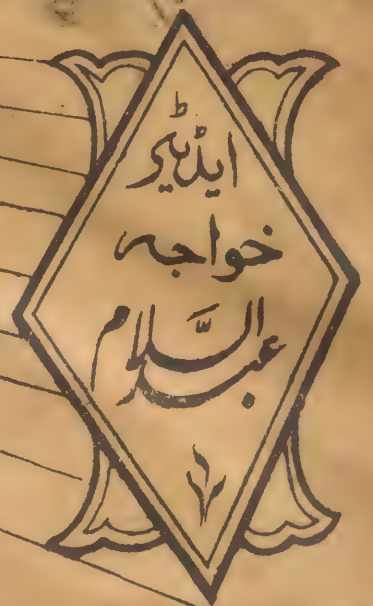 ایڈیٹر
خواجہ
عبدالسَّلام